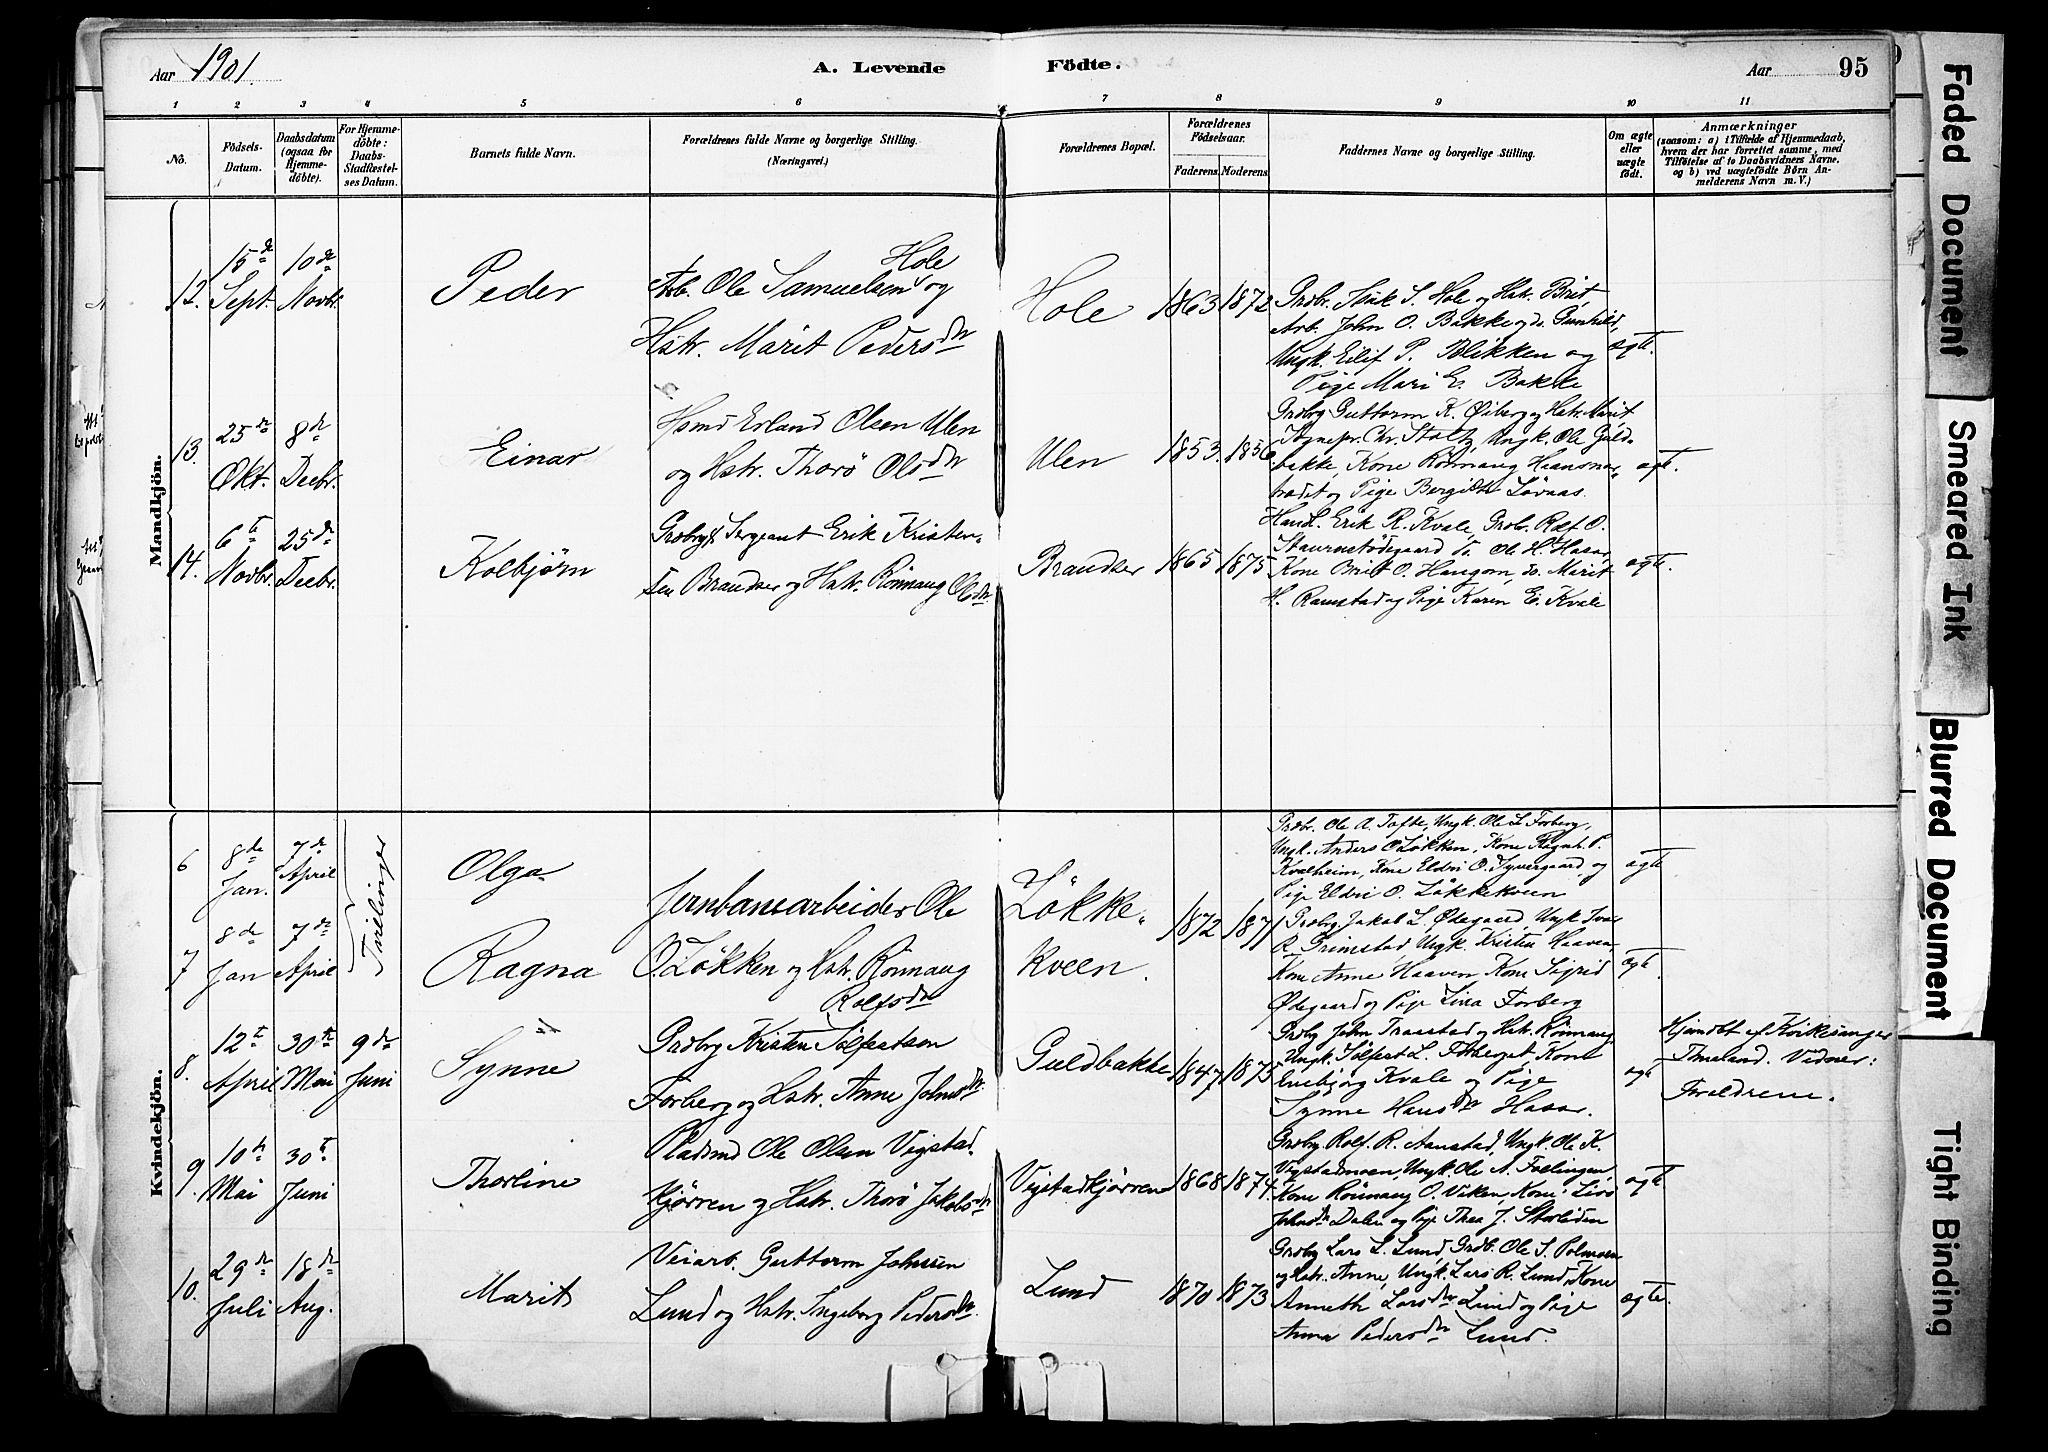 Aar 1901.
A. Levende Födte.
Aar 95
1 2 3 4 5 6 7 8 9 10 11
No.
Födsels-Datum.
Daabsdatum (ogsaa for Hjemme-döbte).
For Hjemme-döbte: Daabs-Stadfæstel-ses Datum.
Barnets fulde Navn.
Forældrenes fulde Navne og borgerlige Stilling. (Næringsvei.)
Forældrenes Bopæl.
Forældrenes Födselsaar.
Faderens. Moderens.
Faddernes Navne og borgerlige Stilling.
Om ægte eller uægte födt.
Anmærkninger
(saasom: a) i Tilfælde af Hjemmedaab,
hvem der har forrettet samme, med
Tilföielse af to Daabsvidners Navne,
og b) ved uægtefödte Börn An-
melderens Navn m. V.)
Mandkjön.
12. 15de Sept. 10de Novbr.
Peder
Arb. Ole Samuelsen Hole og
Hstr. Marit Pedersdtr
Hole 1863 1872
Grdbr. S. Hole og Hstr. Brit,
Arb. John O. Bakke og do. Gunhild,
Ungk. Eilif P. Blikken og
Pige Mari E. Bakke
ægte.
13. 25de Okt. 8de Decbr.
Einar
Hsmd Erland Olsen Ulen
og Hstr. Thorö Olsdtr
Ulen 1853. 1856
Grdbrg Guttorm K. Öiberg og Hstr. Marit,
Sognepr. Chr. Stoltz, Ungk. Ole Guld-
bakke, Kone Rönnaug Haansnar-
trædet og Pige Bergitte Lövaas.
ægt.
14. 6te Novbr. 25de Decbr.
Kolbjörn
Grdbrg & Sergeant Erik Kristen-
sen Brandser og Hstr. Rönnaug Olsdtr.
Brandser 1865 1875
Handl. Erik R. Kvale, Grdbr. Rolf O.
Staurustödegaard, do. Ole H. Hasar,
Kone Britt O. Haugom, do. Marit
H. Ramstad og Pige Karen E. Kvale
ægte.
Kvindekjön.
6 8de Jan. 7de April
Tvillinger
Olga
Jernbanearbeider Ole
O. Lökken og Hstr. Rönnaug
Rolfsdtr
Lökke-
kveen.
1872 1871
Grdbr. Ole A. Tofte, Ungk. Ole L. Forberg,
Ungk. Anders O. Lökken, Kone Ragnh. P.
Kvalheim, Kone Eldri O. Syvergaard, og
Pige Eldri O. Lökkekveen
ægte
7 8de Jan 7de April
Ragna
Grdbrg Jakob L. Ödegaard, Ungk Ivar
R. Grimstad, Ungk. Kristen Haaven
Kone Anne Haaven Kone Sigrid
Ödegaard og Pige Lina Forberg
ægte
8. 12te April 30te Mai 9de Juni
Synne
Grdbrg Kristen Sölfestsen
Forberg og Hstr. Anne Johnsdtr.
Guldbakke 1847 1875
Grdbrg John Traastad og Hstr. Rönnaug
Ungk. Sölfest L. Forberget, Kone
Ingebjörg Kvale og Pige
Synne Hansdtr Hasar.
ægte
Hjemdbt af Kirkesanger
Thveland. Vidner:
Foreldrene.
9. 10de Mai 30te Juni
Thorline
Pladsmd Ole Olsen Vigstad-
kjörren og Hstr. Thorö Jakobsdtr
Vigstadkjörren 1868 1874
Grdbrg Rolf R. Aanstad, Ungk. Ole K.
Vigstadmoen, Ungk. Ole A. Foelingen,
Kone Rönnaug O. Viken, Kone Liva
Johnsdtr Dalen og Pige Thea J. Storliden
ægte
10. 29de Juli 18de Aug.
Marit
Veiarb. Guttorm Johnsen
Lund og Hstr. Ingeborg Pedersdtr.
Lund 1870 1873
Grdbrg Lars L. Lund, Grdb. Ole S. Polmoen
og Hstr. Anne, Ungk. Lars R. Lund, Kone
Anneth Larsdtr Lund og Pige
Anna Pedersdtr Lund.
ægte.
Faded Document
Smeared Ink
Blurred Document
Tight Binding